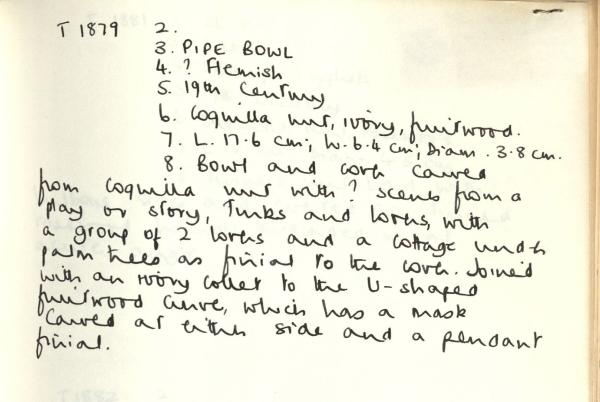 T 1879 2.
3. PIPE BOWL
4. ? Flemish
5. 19th Century
6. Coquilla nut, ivory, fruitwood.
7. L. 17.6 cm; W. 6.4 cm; Diam. 3.8 cm.
8. Bowl and cover carved
from coquilla nut with ? scenes from a
play or story, Turks and lovers, with
a group of 2 lovers and a cottage under
palm trees as finial to the cover. Joined
with an ivory collet to the U-shaped
fruitwood curve, which has a mask
carved at either side and a pendant
finial.
T 1882 2